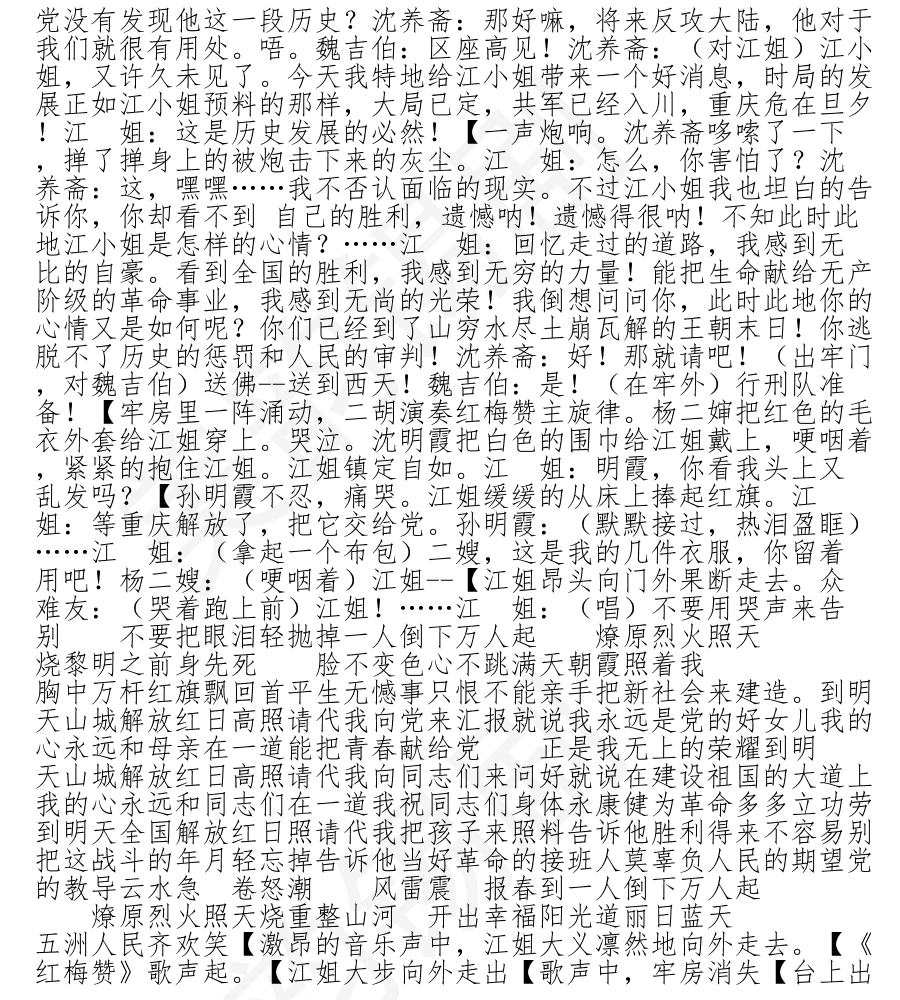 党没有发现他这一段历史？沈养斋：那好嘛，将来反攻大陆，他对于
我们就很有用处。唔。魏吉伯：区座高见！沈养斋：（对江姐）江小
姐，又许久未见了。今天我特地给江小姐带来一个好消息，时局的发
展正如江小姐预料的那样，大局已定，共军已经入川，重庆危在旦夕
！江　姐：这是历史发展的必然！【一声炮响。沈养斋哆嗦了一下
，掸了掸身上的被炮击下来的灰尘。江　姐：怎么，你害怕了？沈
养斋：这，嘿嘿……我不否认面临的现实。不过江小姐我也坦白的告
诉你，你却看不到 自己的胜利，遗憾呐！遗憾得很呐！不知此时此
地江小姐是怎样的心情？……江　姐：回忆走过的道路，我感到无
比的自豪。看到全国的胜利，我感到无穷的力量！能把生命献给无产
阶级的革命事业，我感到无尚的光荣！我倒想问问你，此时此地你的
心情又是如何呢？你们已经到了山穷水尽土崩瓦解的王朝末日！你逃
脱不了历史的惩罚和人民的审判！沈养斋：好！那就请吧！（出牢门
，对魏吉伯）送佛--送到西天！魏吉伯：是！（在牢外）行刑队准
备！【牢房里一阵涌动，二胡演奏红梅赞主旋律。杨二婶把红色的毛
衣外套给江姐穿上。哭泣。沈明霞把白色的围巾给江姐戴上，哽咽着
，紧紧的抱住江姐。江姐镇定自如。江　姐：明霞，你看我头上又
乱发吗？【孙明霞不忍，痛哭。江姐缓缓的从床上捧起红旗。江
姐：等重庆解放了，把它交给党。孙明霞：（默默接过，热泪盈眶）
……江　姐：（拿起一个布包）二嫂，这是我的几件衣服，你留着
用吧！杨二嫂：（哽咽着）江姐--【江姐昂头向门外果断走去。众
难友：（哭着跑上前）江姐！……江　姐：（唱）不要用哭声来告
别　　不要把眼泪轻抛掉一人倒下万人起　　燎原烈火照天
烧黎明之前身先死　　脸不变色心不跳满天朝霞照着我
胸中万杆红旗飘回首平生无憾事只恨不能亲手把新社会来建造。到明
天山城解放红日高照请代我向党来汇报就说我永远是党的好女儿我的
心永远和母亲在一道能把青春献给党　　正是我无上的荣耀到明
天山城解放红日高照请代我向同志们来问好就说在建设祖国的大道上
我的心永远和同志们在一道我祝同志们身体永康健为革命多多立功劳
到明天全国解放红日照请代我把孩子来照料告诉他胜利得来不容易别
把这战斗的年月轻忘掉告诉他当好革命的接班人莫辜负人民的期望党
的教导云水急　卷怒潮　　风雷震　报春到一人倒下万人起
　　燎原烈火照天烧重整山河　开出幸福阳光道丽日蓝天
五洲人民齐欢笑【激昂的音乐声中，江姐大义凛然地向外走去。【《
红梅赞》歌声起。【江姐大步向外走出【歌声中，牢房消失【台上出